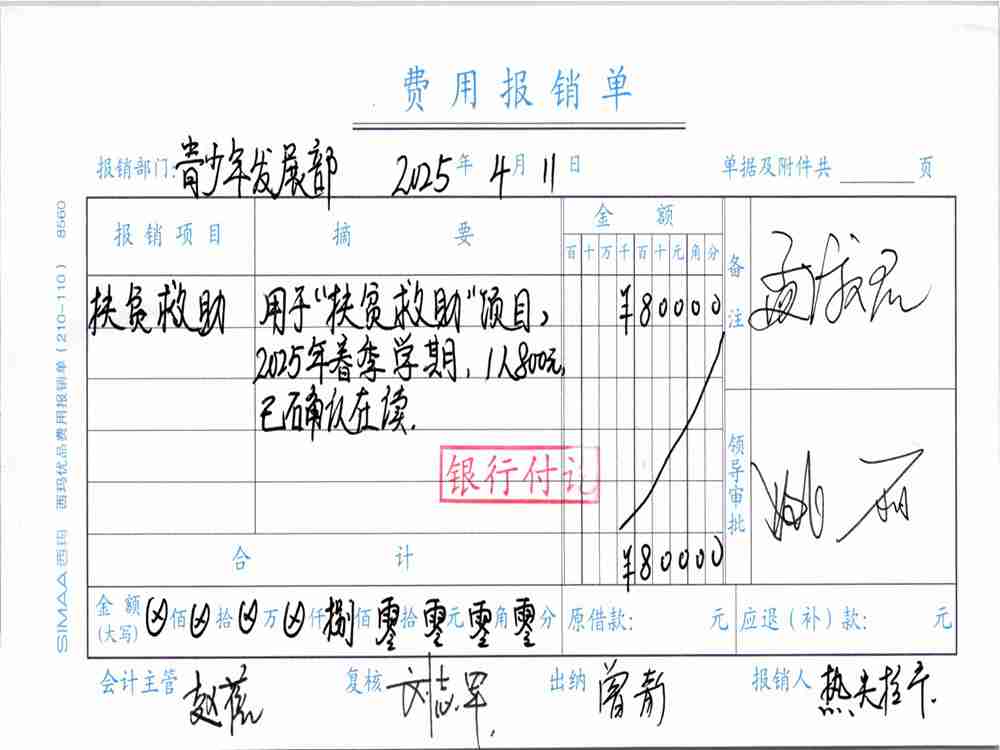 费用报销单
报销部门:青少年发展部 2025年4月11日 单据及附件共 页
报销项目 摘要 金额 备注
百十万千百十元角分
扶贫救助 用于“扶贫救助”项目, ¥80000
2025年春季学期,1人800元,
已确认在读.
银行付讫
领导审批 姚丽
合计 ¥80000
金额(大写) ⊗佰⊗拾⊗万⊗仟捌佰零拾零元零角零分 原借款: 元 应退(补)款: 元
会计主管 复核 出纳 曾青 报销人
SIMAA西玛 西玛优品费用报销单(210-110) 8560